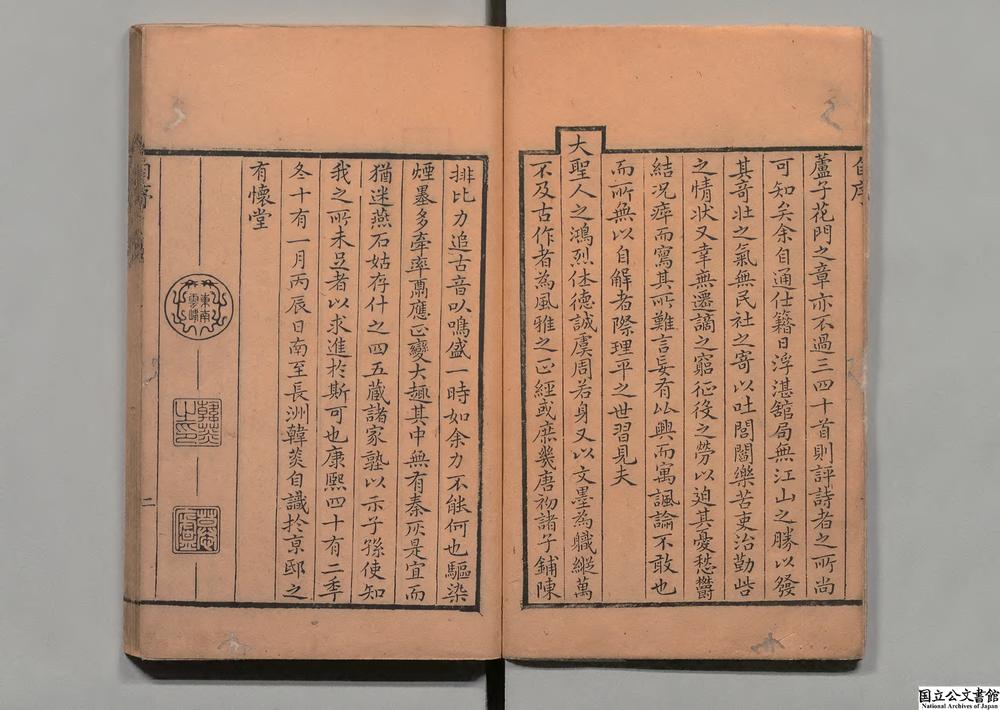 自序
蘆子花門之章亦不過三四十首則評詩者之所尚
可知矣余自通仕籍日浮湛館局無江山之勝以發
其奇壯之氣無民社之寄以吐閭閻樂苦吏治勤呰
之情狀又幸無遷謫之窮征役之勞以迫其憂愁欝
結況瘁而寫其所難言妄有比興而寓諷論不敢也
而所無以自解者際理平之世習見夫
大聖人之鴻烈体德誠虞周若身又以文墨為職縱萬
不及古作者為風雅之正經或庶幾唐初諸子鋪陳
排比力追古音以鳴盛一時如余力不能何也驅染
煙墨多牽率應正變大趣其中無有秦灰是宜而
猶迷燕石姑存什之四五蔵諸家塾以示子孫使知
我之所未足者以求進於斯可也康熙四十有二季
冬十有一月丙辰日南至長洲韓菼自識於京邸之
有懷堂
東南
雲峰
韓菼
之印
慕廬
自序
二
国立公文書館
National Archives of Japan